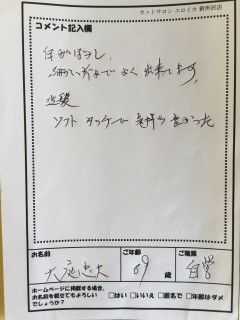 カットサロン エロイカ 新所沢店
コメント記入欄
仕上がりよし、
細かい所までよく出来てます。
洗髪
ソフトタッチで気持ち良かった
お名前
ご年齢
69 歳
ご職業
自営
ホームページに掲載する場合、
お名前を載せてもよろしい
でしょうか？
□はい □いいえ □匿名で □年齢はダメ